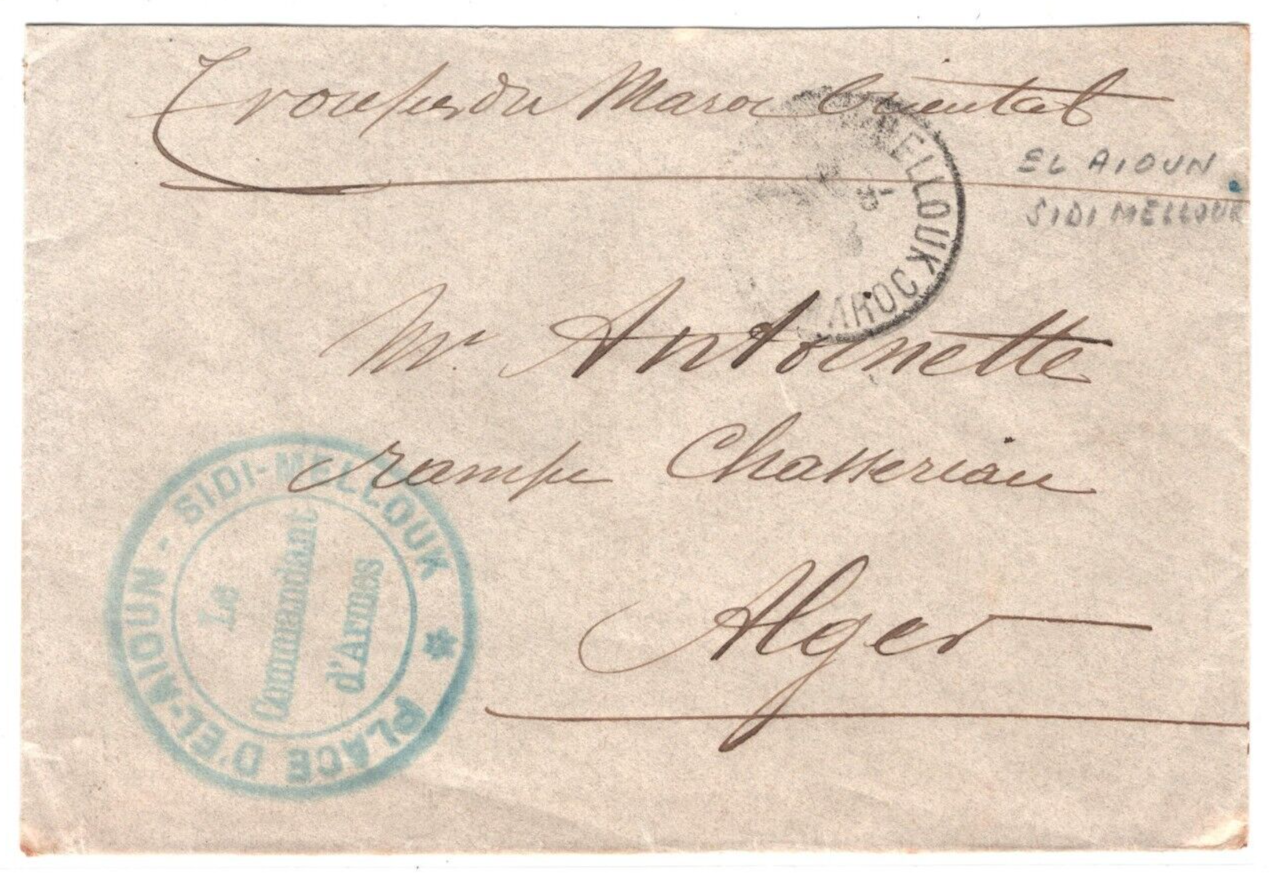 Troupes du Maroc Oriental
MELLOUK
MAROC
EL AIOUN
SIDI MELLOUK
Mr Antoinette
rampe Chasseriau
Alger
PLACE D'EL-AIOUN - SIDI-MELLOUK *
Le
Commandant
d'Armes